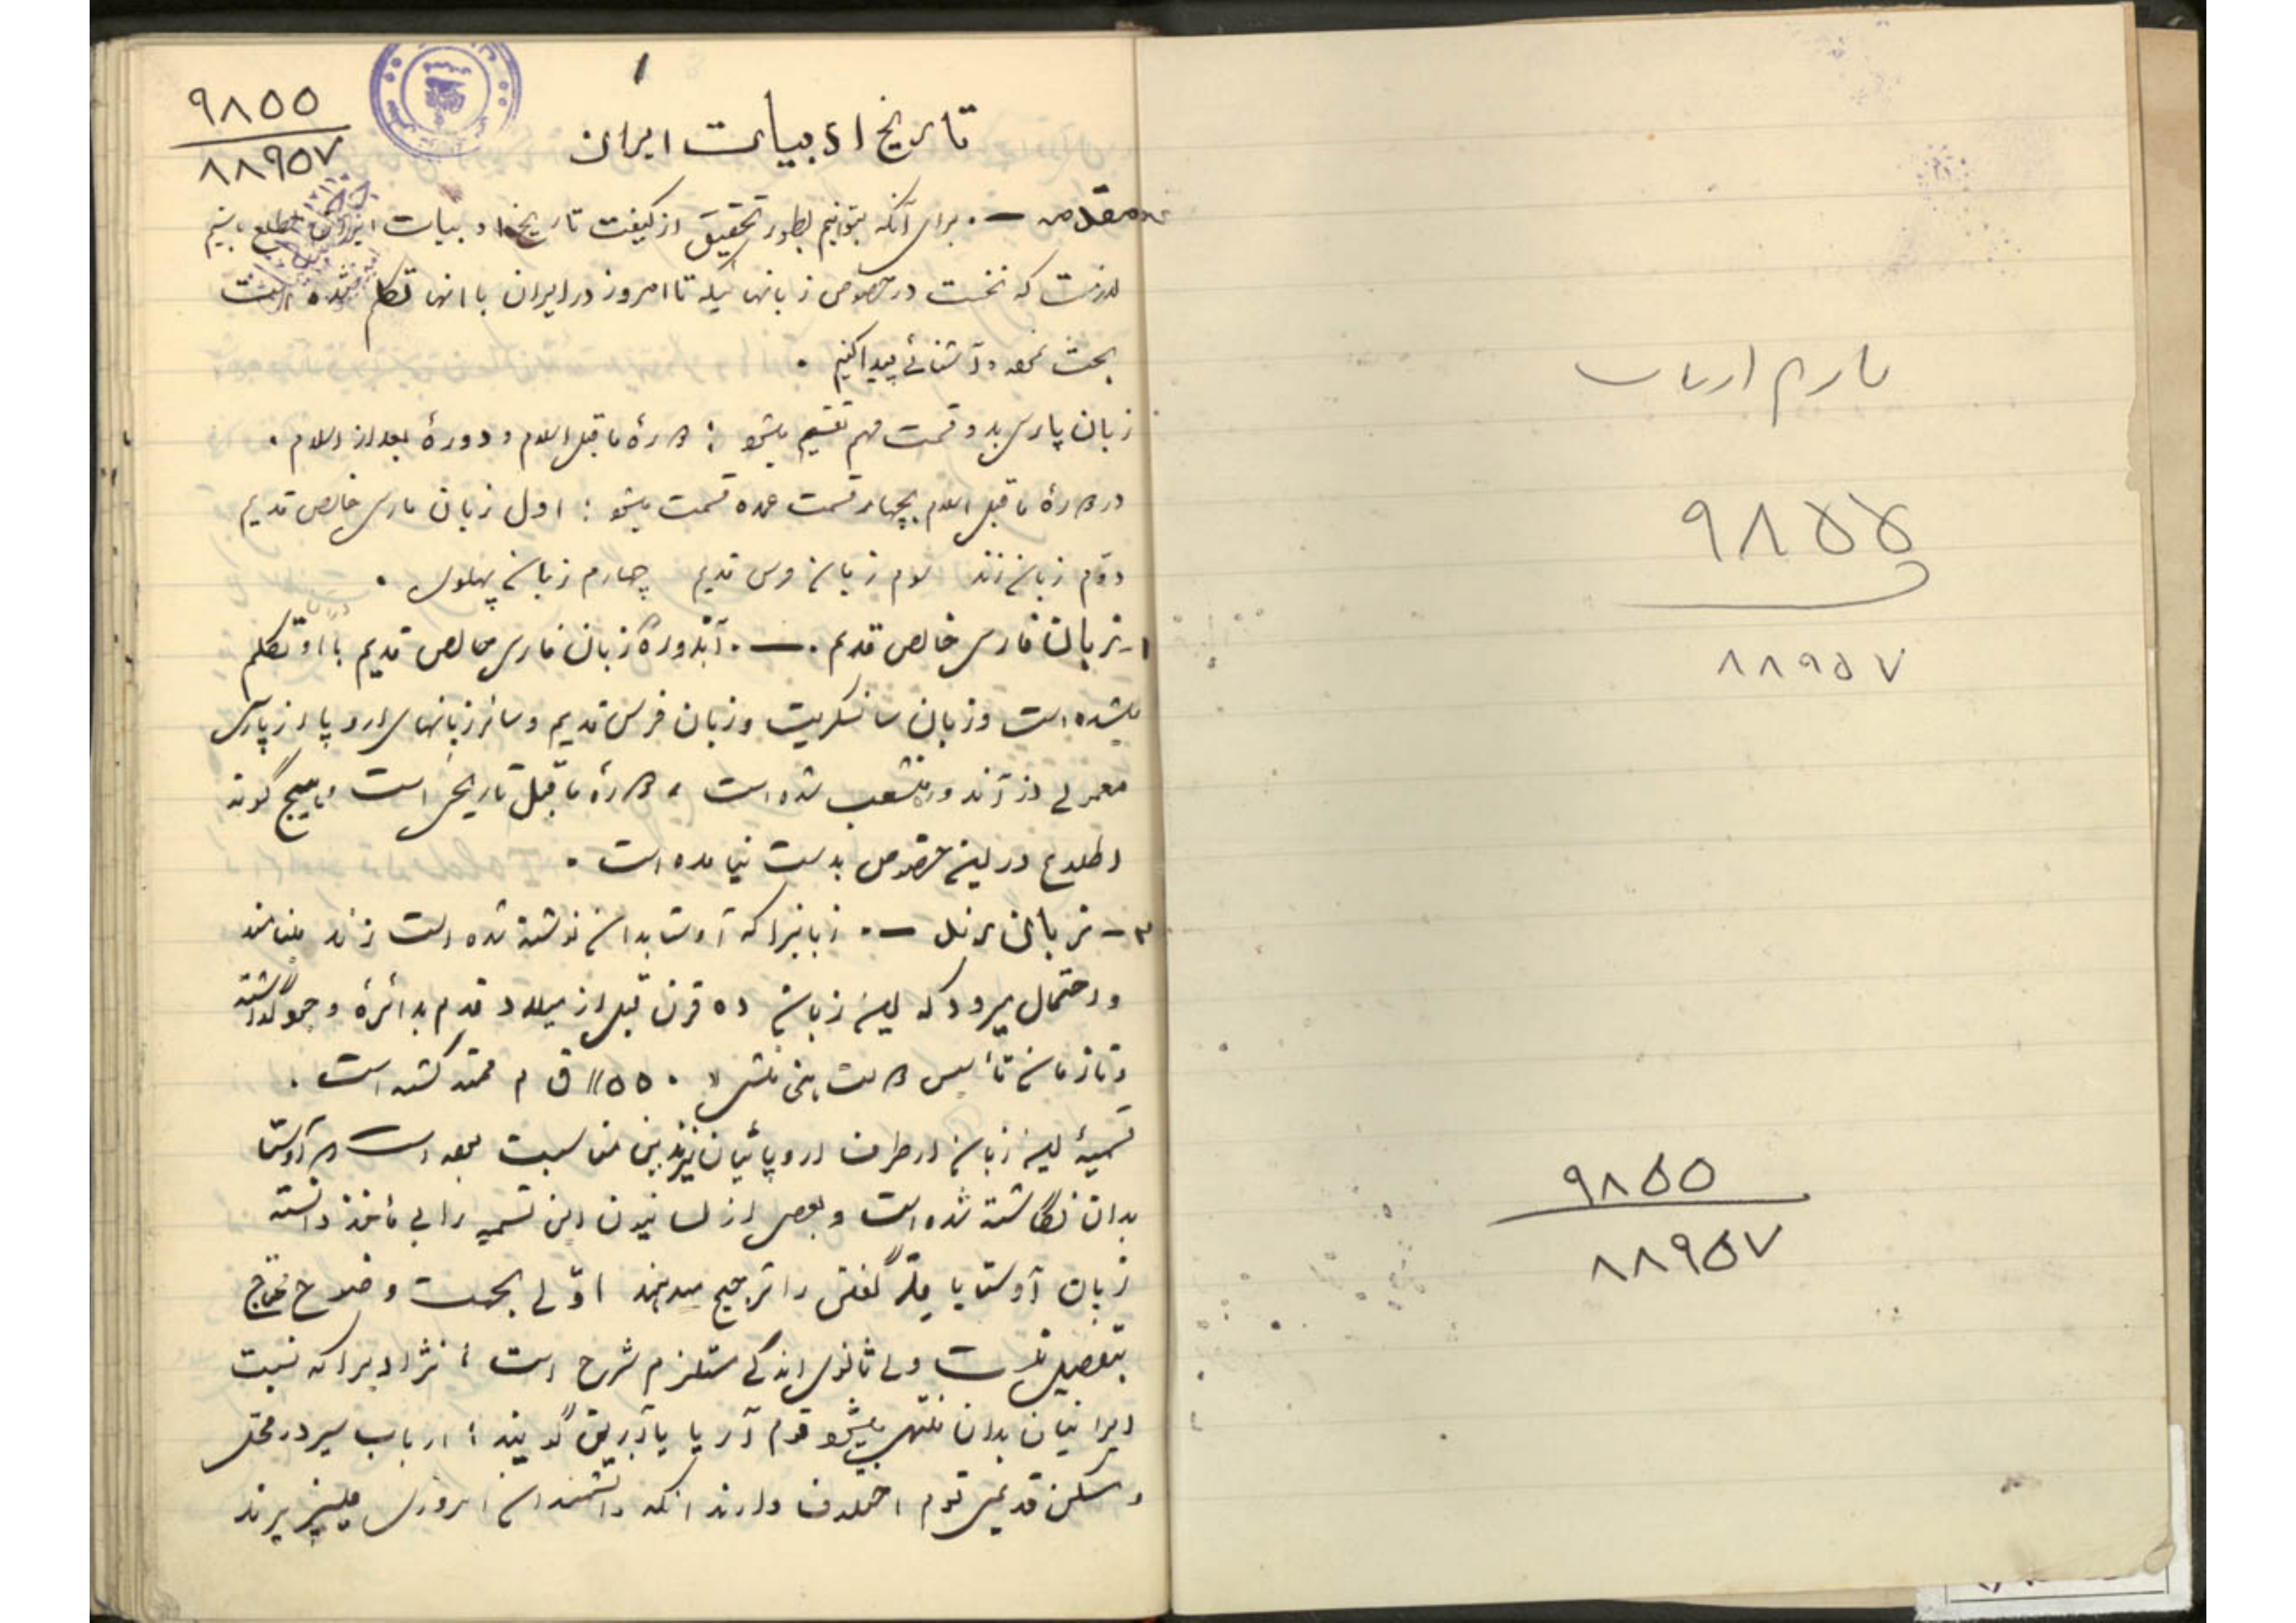 تاریخ ادبیات
۹۸۵۵
۸۸۹۵۷
۹۸۵۵
۸۸۹۵۷
۱
۹۸۵۵
۸۸۹۵۷
تاریخ ادبیات ایران
مقدمه — . برای آنکه بتوانیم بطور تحقیق از کیفیت تاریخ ادبیات ایران مطلع باشیم
لازمست که نخست در خصوص زبانهائیکه تا امروز در ایران با انها تکلم شده است
بحث نموده آشنائی پیدا کنیم .
زبان پارسی بدو قسمت مهم تقسیم میشود : دورهٔ ماقبل اسلام و دورهٔ بعد از اسلام .
دورهٔ ماقبل اسلام بچهار قسمت عمده قسمت میشود : اول زبان پارسی خالص قدیم
دوّم زبان زند سوم زبان فرس قدیم چهارم زبان پهلوی .
۱- زبان فارسی خالص قدیم . — . آندوره زبان فارسی خالص قدیم با او تکلم
میشده است و زبان سانسکریت و زبان فرس قدیم و سائر زبانهای اروپا و از پارسی
معمولی از آندوره منشعب شده است ، دورهٔ ماقبل تاریخی است و هیچ گونه
اطلاع در این خصوص بدست نیامده است .
۲- زبان زند — . زبانیرا که آوستا بدان نوشته شده است زند مینامند
و احتمال میرود که این زبان ده قرن قبل از میلاد قدم بدائرهٔ وجود گذاشته
و تا زمان تأسیس دولت هخامنشی « ۵۵۰ » ق م ممتد گشته است .
تسمیهٔ این زبان از طرف اروپائیان بزند بدین مناسبت بوده است که آوستا
بدان نگاشته شده است و بعضی از لسانیون این تسمیه را بی مأخذ دانسته
زبان آوستا یا گفتن را ترجیح میدهند اوّلی بجهت وضوح محتاج
بتفصیل نیست ولی ثانوی اندکی مستلزم شرح است ؛ نژادیرا که نسبت
ایرانیان بدان منتهی میشود قوم آریا یا آرین گویند ؛ ارباب سیر در محل
و مسکن قدیمی قوم اختلاف دارند آنکه دانشمندان امروزی میپذیرند